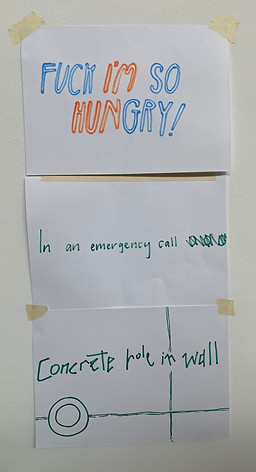 FUCK I'M SO
HUNGRY!
In an emergency call
Concrete hole in wall